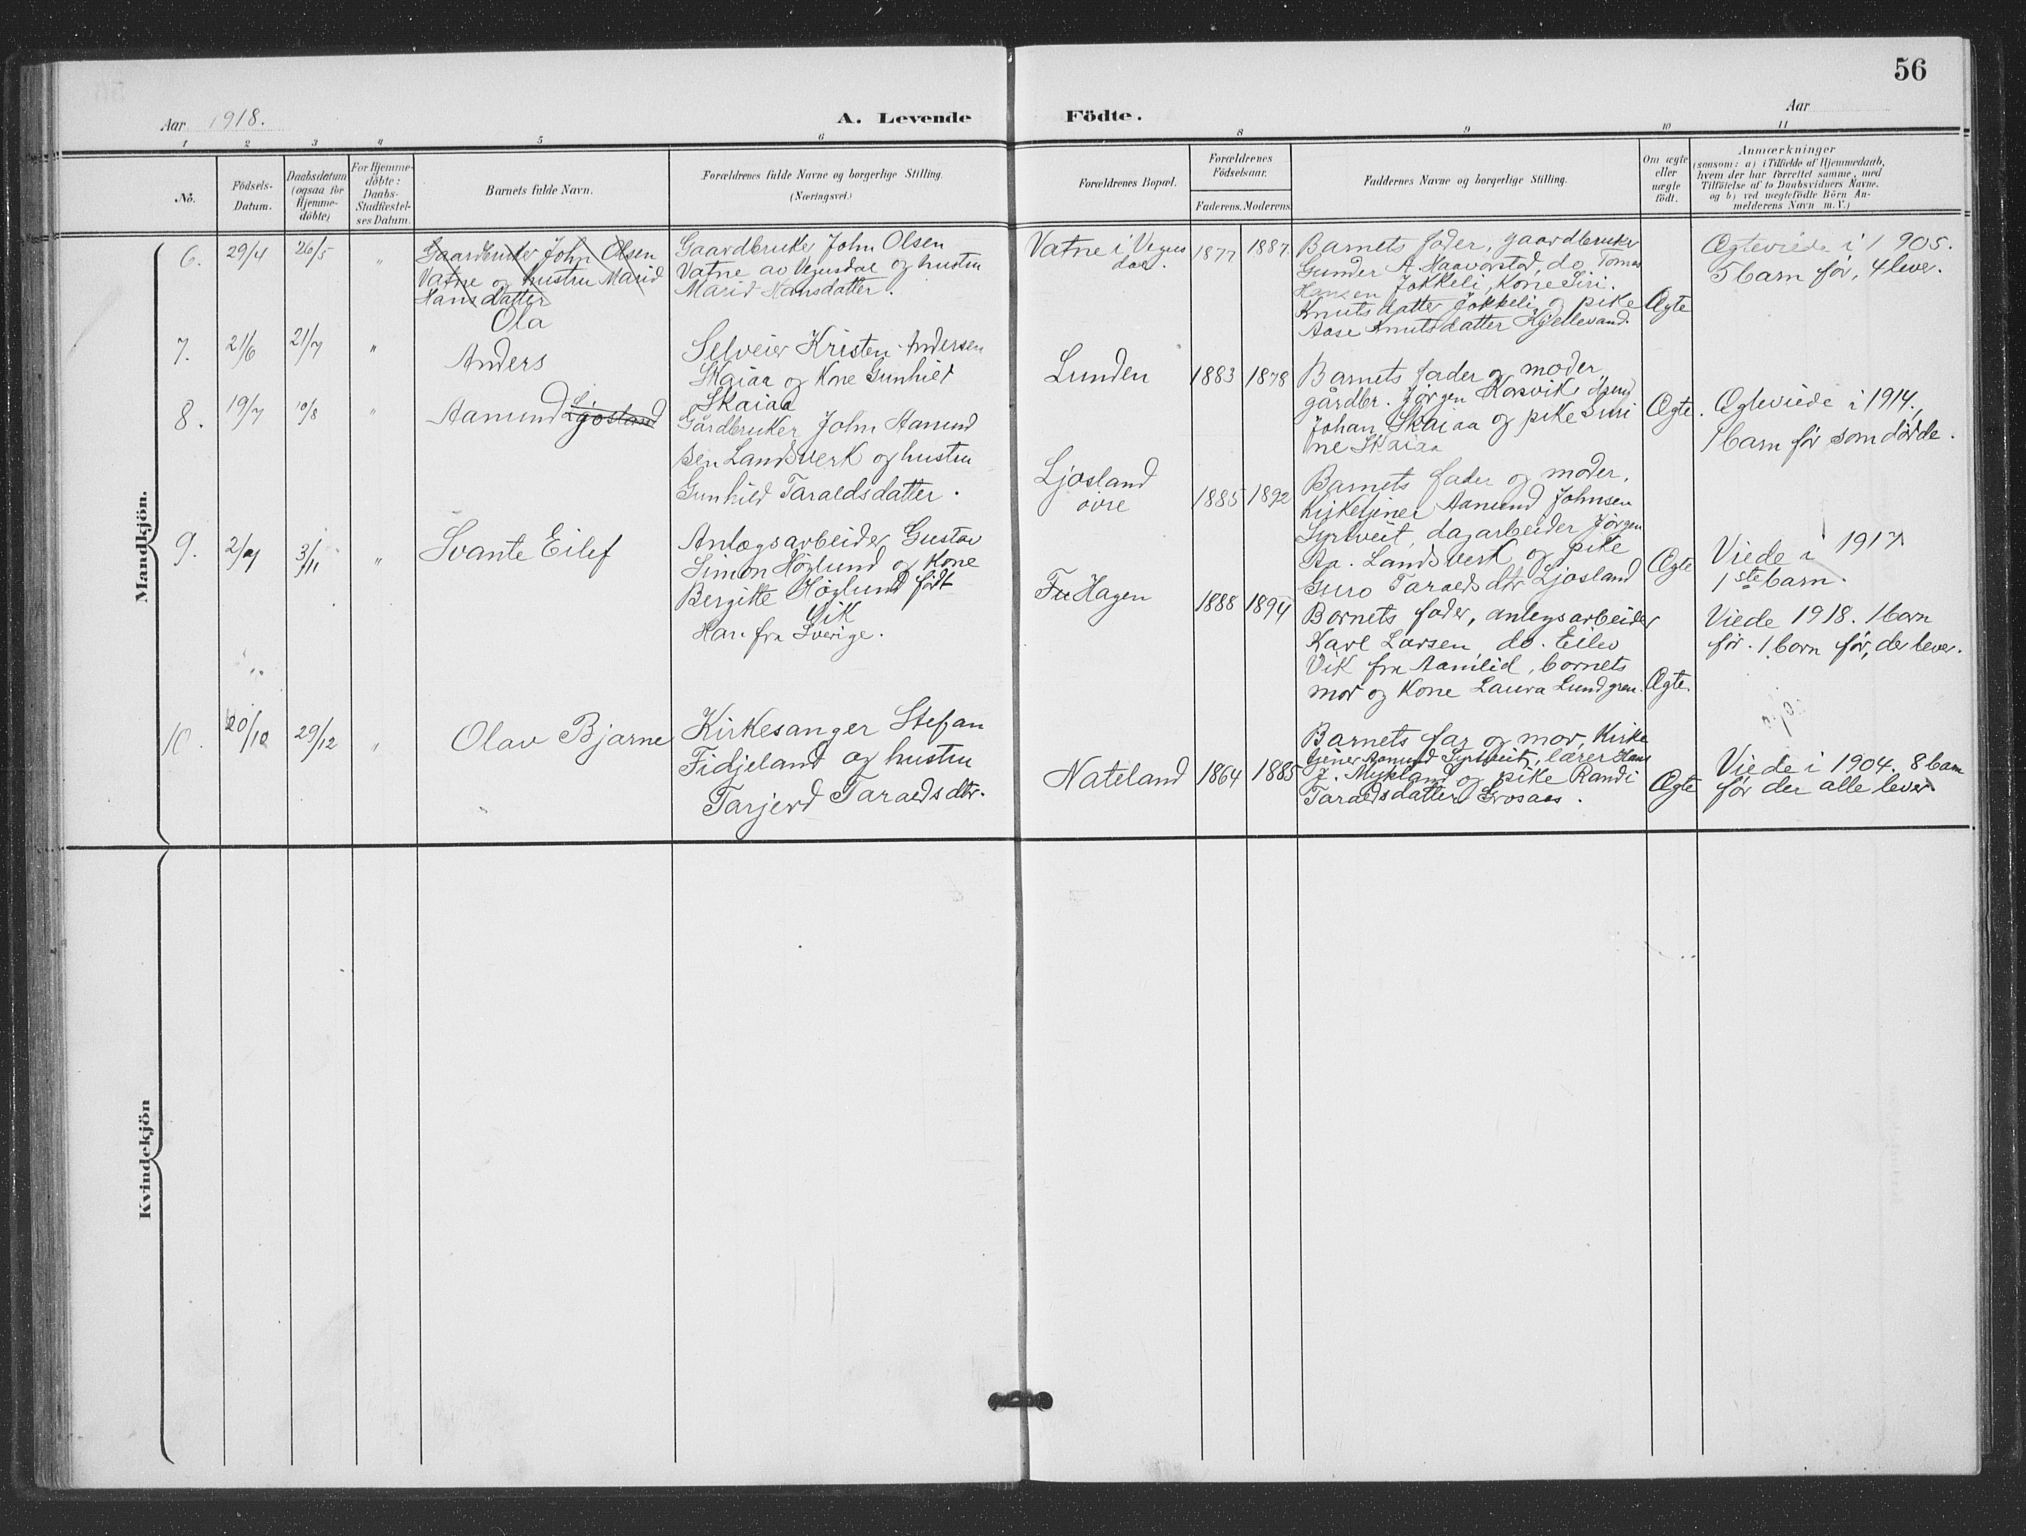 56
Aar 1918.
A. Levende Födte.
Aar
1 2 3 4 5 6 8 9 10 11
No.
Födsels-
Datum.
Daabsdatum
(ogsaa for
Hjemme-
döbte)
For Hjemme-
döbte:
Daabs-
Stadfæstel-
ses Datum.
Barnets fulde Navn.
Forældrenes fulde Navne og borgerlige Stilling.
(Næringsvei.)
Forældrenes Bopæl.
Forældrenes
Födselsaar.
Faderens. Moderens.
Faddernes Navne og borgerlige Stilling.
Om ægte
eller
uægte
födt.
Anmærkninger
(saasom: a) i Tilfælde af Hjemmedaab,
hvem der har forrettet samme, med
Tilföielse af to Daabsvidners Navne.
og b) ved uægtefödte Börn An-
melderens Navn m. V.)
Mandkjön.
6. 29/4 26/5 "
Gaardbruker John Olsen
Vatne og hustru Marid
Hansdatter
Ola
Gaardbruker John Olsen
Vatne av Vegusdal og hustru
Marid Hansdatter.
Vatne i Vegus
dal.
1877 1887
Barnets fader, gaardbruker
Gunder A. Haavorstad, do. Tomas
Hansen Jokkeli, Kone Siri
Knutsdatter Jokkeli og pike
Aase Knutsdatter Kjellevand.
Ægte
Ægteviede i 1905.
5 barn før, 4 lever.
7. 21/6 21/7 "
Anders
Selveier Kristen Andersen
Skaiaa og Kone Gunhild
Skaiaa
Lunden
1883 1878
Barnets fader og moder,
gårdbr. Jörgen Korsvik,
Johan Skaiaa og pike Siri
ne Skaiaa
Ægte.
Ægteviede i 1914,
1 barn før som døde.
8. 19/7 10/8 "
Aamund Ljosland
Gårdbruker John Aamund
sen Landsverk og hustru
Gunhild Taraldsdatter.
Ljosland
øvre
1885 1892
Barnets fader og moder,
Kirketjener Aamund Johnsen
Syrtveit, dagarbeider Jörgen
Aa. Landsverk og pike
Guro Taraldsdtr Ljosland
Ægte
Viede i 1917
1ste barn.
9. 2/9 3/11 "
Svante Eilef
Anlægsarbeider Gustav
Simon Höglund og Kone
Bergitte Höglund født
Vik
Han fra Sverige.
Hagen
1888 1894
Barnets fader, anlegsarbeider
Karl Larsen, do. Eilev
Vik fra Aamlid, barnets
mor og Kone Laura Lundgren.
Ægte.
Viede 1918. 1 barn
før. 1 barn før, der lever.
10. 20/10 29/12 "
Olav Bjarne
Kirkesanger Stefan
Fidjeland og hustru
Tarjerd Taraldsdtr.
Nateland
1864 1885
Barnets far og mor, Kirke
tjener Aamund Syrtveit, lærer Hans
J. Mykland og pike Randi
Taraldsdatter Grosaas.
Ægte
Viede i 1904. 8 barn
før der alle lever
Kvindekjön